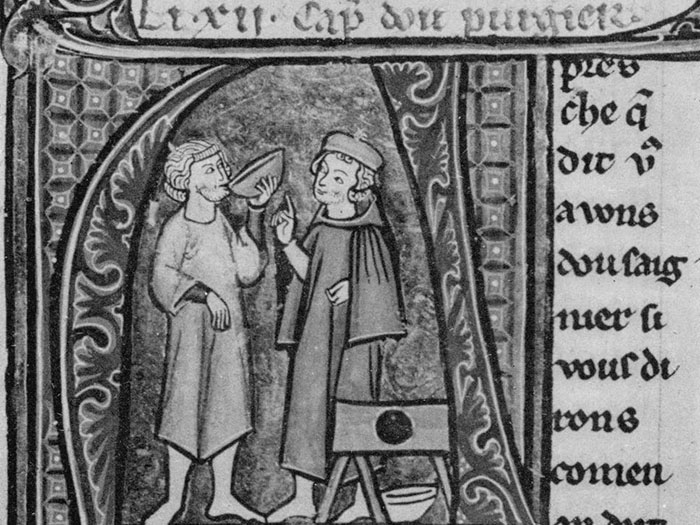 Li·xij· Cap̄ dou purgier·
pres
che q̄
dit v̄
avons
dou saig
nier si
vous di
rons
comen